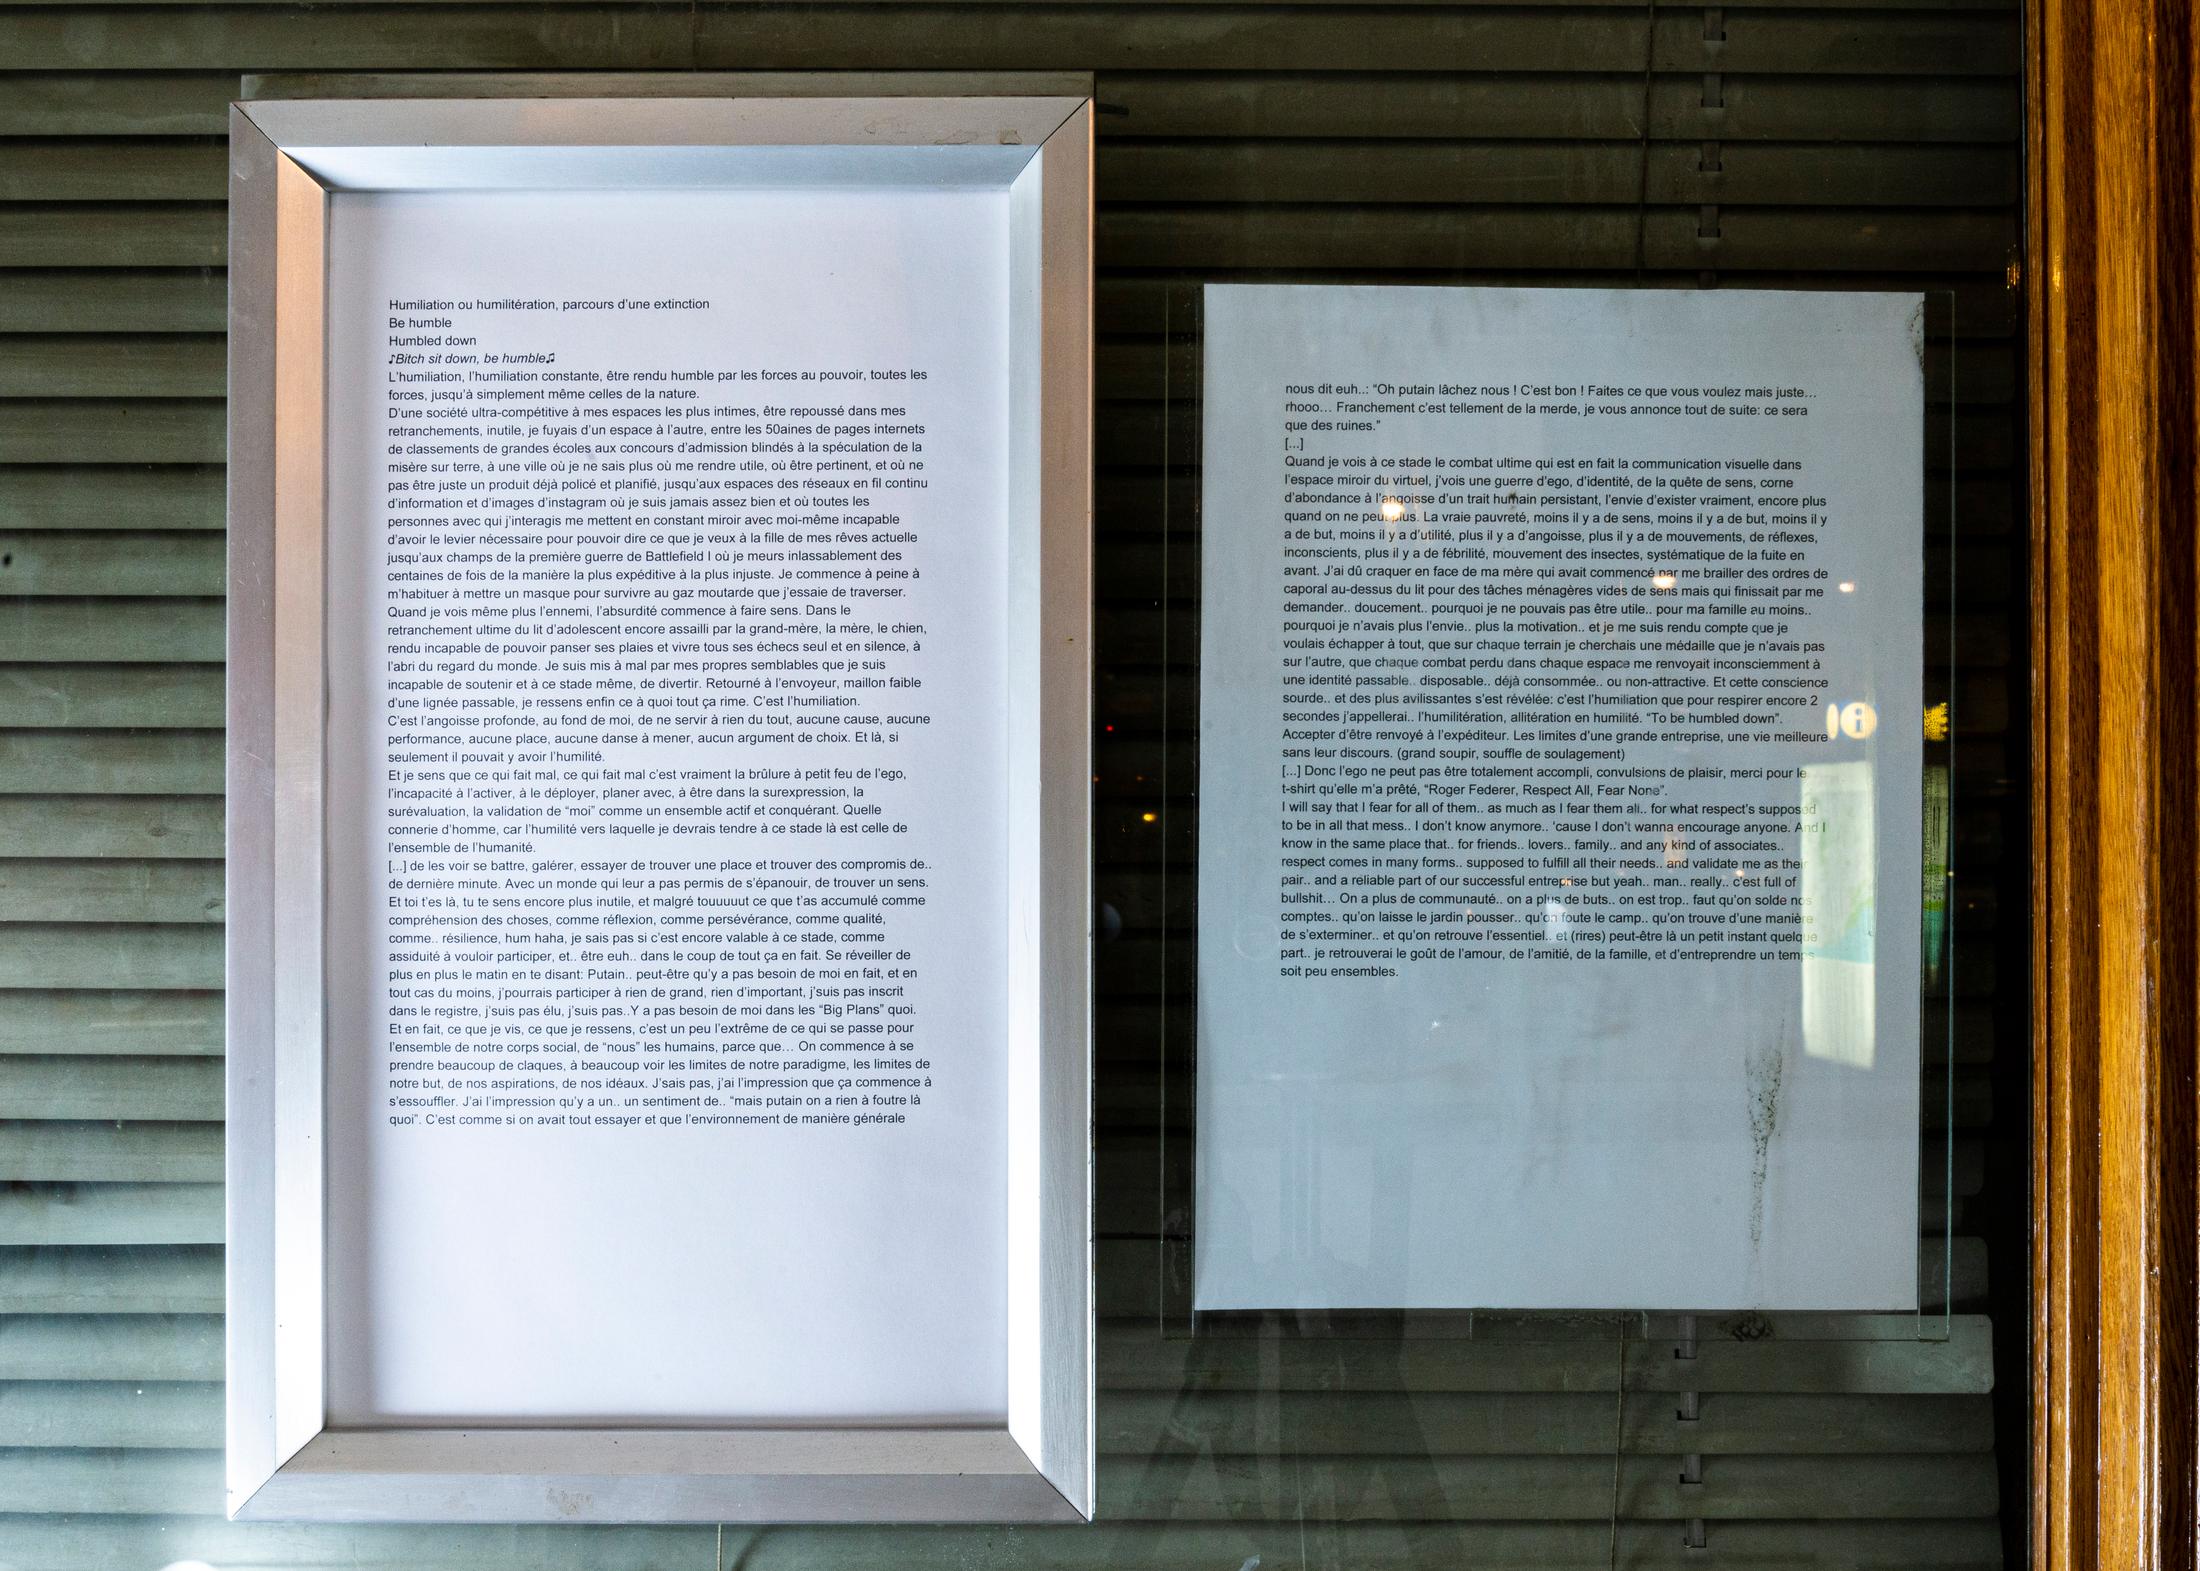 Humiliation ou humilitération, parcours d'une extinction
Be humble
Humbled down
♪Bitch sit down, be humble♫
L'humiliation, l'humiliation constante, être rendu humble par les forces au pouvoir, toutes les
forces, jusqu'à simplement même celles de la nature.
D'une société ultra-compétitive à mes espaces les plus intimes, être repoussé dans mes
retranchements, inutile, je fuyais d'un espace à l'autre, entre les 50aines de pages internets
de classements de grandes écoles aux concours d'admission blindés à la spéculation de la
misère sur terre, à une ville où je ne sais plus où me rendre utile, où être pertinent, et où ne
pas être juste un produit déjà policé et planifié, jusqu'aux espaces des réseaux en fil continu
d'information et d'images d'instagram où je suis jamais assez bien et où toutes les
personnes avec qui j'interagis me mettent en constant miroir avec moi-même incapable
d'avoir le levier nécessaire pour pouvoir dire ce que je veux à la fille de mes rêves actuelle
jusqu'aux champs de la première guerre de Battlefield I où je meurs inlassablement des
centaines de fois de la manière la plus expéditive à la plus injuste. Je commence à peine à
m'habituer à mettre un masque pour survivre au gaz moutarde que j'essaie de traverser.
Quand je vois même plus l'ennemi, l'absurdité commence à faire sens. Dans le
retranchement ultime du lit d'adolescent encore assailli par la grand-mère, la mère, le chien,
rendu incapable de pouvoir panser ses plaies et vivre tous ses échecs seul et en silence, à
l'abri du regard du monde. Je suis mis à mal par mes propres semblables que je suis
incapable de soutenir et à ce stade même, de divertir. Retourné à l'envoyeur, maillon faible
d'une lignée passable, je ressens enfin ce à quoi tout ça rime. C'est l'humiliation.
C'est l'angoisse profonde, au fond de moi, de ne servir à rien du tout, aucune cause, aucune
performance, aucune place, aucune danse à mener, aucun argument de choix. Et là, si
seulement il pouvait y avoir l'humilité.
Et je sens que ce qui fait mal, ce qui fait mal c'est vraiment la brûlure à petit feu de l'ego,
l'incapacité à l'activer, à le déployer, planer avec, à être dans la surexpression, la
surévaluation, la validation de "moi" comme un ensemble actif et conquérant. Quelle
connerie d'homme, car l'humilité vers laquelle je devrais tendre à ce stade là est celle de
l'ensemble de l'humanité.
[...] de les voir se battre, galérer, essayer de trouver une place et trouver des compromis de..
de dernière minute. Avec un monde qui leur a pas permis de s'épanouir, de trouver un sens.
Et toi t'es là, tu te sens encore plus inutile, et malgré touuuuut ce que t'as accumulé comme
compréhension des choses, comme réflexion, comme persévérance, comme qualité,
comme.. résilience, hum haha, je sais pas si c'est encore valable à ce stade, comme
assiduité à vouloir participer, et.. être euh.. dans le coup de tout ça en fait. Se réveiller de
plus en plus le matin en te disant: Putain.. peut-être qu'y a pas besoin de moi en fait, et en
tout cas du moins, j'pourrais participer à rien de grand, rien d'important, j'suis pas inscrit
dans le registre, j'suis pas élu, j'suis pas..Y a pas besoin de moi dans les "Big Plans" quoi.
Et en fait, ce que je vis, ce que je ressens, c'est un peu l'extrême de ce qui se passe pour
l'ensemble de notre corps social, de "nous" les humains, parce que… On commence à se
prendre beaucoup de claques, à beaucoup voir les limites de notre paradigme, les limites de
notre but, de nos aspirations, de nos idéaux. J'sais pas, j'ai l'impression que ça commence à
s'essouffler. J'ai l'impression qu'y a un.. un sentiment de.. "mais putain on a rien à foutre là
quoi". C'est comme si on avait tout essayer et que l'environnement de manière générale
nous dit euh..: "Oh putain lâchez nous ! C'est bon ! Faites ce que vous voulez mais juste…
rhooo… Franchement c'est tellement de la merde, je vous annonce tout de suite: ce sera
que des ruines."
[...]
Quand je vois à ce stade le combat ultime qui est en fait la communication visuelle dans
l'espace miroir du virtuel, j'vois une guerre d'ego, d'identité, de la quête de sens, corne
d'abondance à l'angoisse d'un trait humain persistant, l'envie d'exister vraiment, encore plus
quand on ne peut plus. La vraie pauvreté, moins il y a de sens, moins il y a de but, moins il y
a de but, moins il y a d'utilité, plus il y a d'angoisse, plus il y a de mouvements, de réflexes,
inconscients, plus il y a de fébrilité, mouvement des insectes, systématique de la fuite en
avant. J'ai dû craquer en face de ma mère qui avait commencé par me brailler des ordres de
caporal au-dessus du lit pour des tâches ménagères vides de sens mais qui finissait par me
demander.. doucement.. pourquoi je ne pouvais pas être utile.. pour ma famille au moins..
pourquoi je n'avais plus l'envie.. plus la motivation.. et je me suis rendu compte que je
voulais échapper à tout, que sur chaque terrain je cherchais une médaille que je n'avais pas
sur l'autre, que chaque combat perdu dans chaque espace me renvoyait inconsciemment à
une identité passable.. disposable.. déjà consommée.. ou non-attractive. Et cette conscience
sourde.. et des plus avilissantes s'est révélée: c'est l'humiliation que pour respirer encore 2
secondes j'appellerai.. l'humilitération, allitération en humilité. "To be humbled down".
Accepter d'être renvoyé à l'expéditeur. Les limites d'une grande entreprise, une vie meilleure
sans leur discours. (grand soupir, souffle de soulagement)
[...] Donc l'ego ne peut pas être totalement accompli, convulsions de plaisir, merci pour le
t-shirt qu'elle m'a prêté, "Roger Federer, Respect All, Fear None".
I will say that I fear for all of them.. as much as I fear them all.. for what respect's supposed
to be in all that mess.. I don't know anymore.. 'cause I don't wanna encourage anyone. And I
know in the same place that.. for friends.. lovers.. family.. and any kind of associates..
respect comes in many forms.. supposed to fulfill all their needs.. and validate me as their
pair.. and a reliable part of our successful entreprise but yeah.. man.. really.. c'est full of
bullshit… On a plus de communauté.. on a plus de buts.. on est trop.. faut qu'on solde nos
comptes.. qu'on laisse le jardin pousser.. qu'on foute le camp.. qu'on trouve d'une manière
de s'exterminer.. et qu'on retrouve l'essentiel.. et (rires) peut-être là un petit instant quelque
part.. je retrouverai le goût de l'amour, de l'amitié, de la famille, et d'entreprendre un temps
soit peu ensembles.